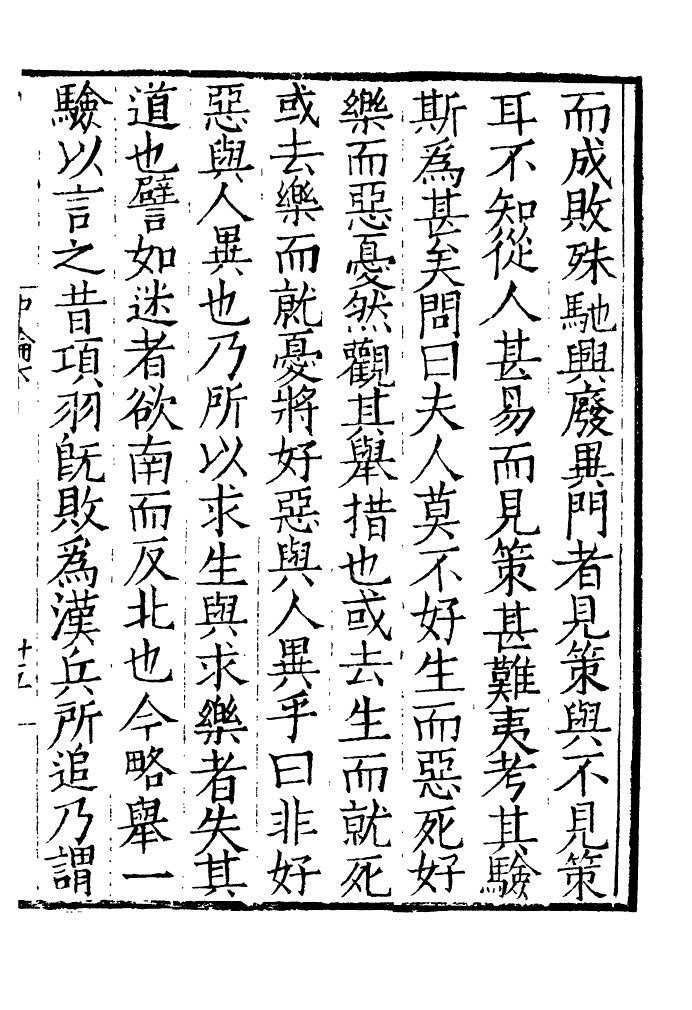 而成敗殊馳興廢異門者見策與不見策
耳不知從人甚易而見策甚難夷考其驗
斯為甚矣問曰夫人莫不好生而惡死好
樂而惡憂然觀其舉措也或去生而就死
或去樂而就憂將好惡與人異乎曰非好
惡與人異也乃所以求生與求樂者失其
道也譬如迷者欲南而反北也今略舉一
驗以言之昔項羽既敗為漢兵所追乃謂